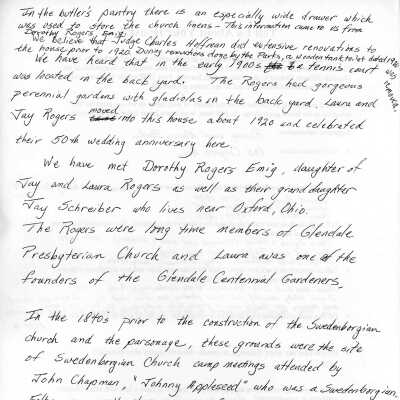 In the butler's pantry there is an especially wide drawer which
was used to store the church linens - This information came to is from
Dorothy Rogers Emig.
We believe that Judge Charles Hoffman did extensive renovations to
the house prior to 1920. During renovations done by the Parks, a wooden tank to let dated 1916
was
We have heard that in the early 1900s a tennis court
was located in the back yard. The Rogers had gorgeous
perennial gardens with gladiolas in the back yard. Laura and
Jay Rogers moved into this house about 1920 and celebrated
their 50th wedding anniversary here.
We have met Dorothy Rogers Emig, daughter of
Jay and Laura Rogers as well as their granddaughter
Jay Schreiber who lives near Oxford, Ohio.
The Rogers were long time members of Glendale
Presbyterian Church and Laura was one of the
founders of the Glendale Centennial Gardeners.
In the 1840's prior to the construction of the Swedenborgian
church and the parsonage, these grounds were the site
of Swedenborgian Church camp meetings attended by
John Chapman, "Johnny Appleseed" who was a Swedenborgian.